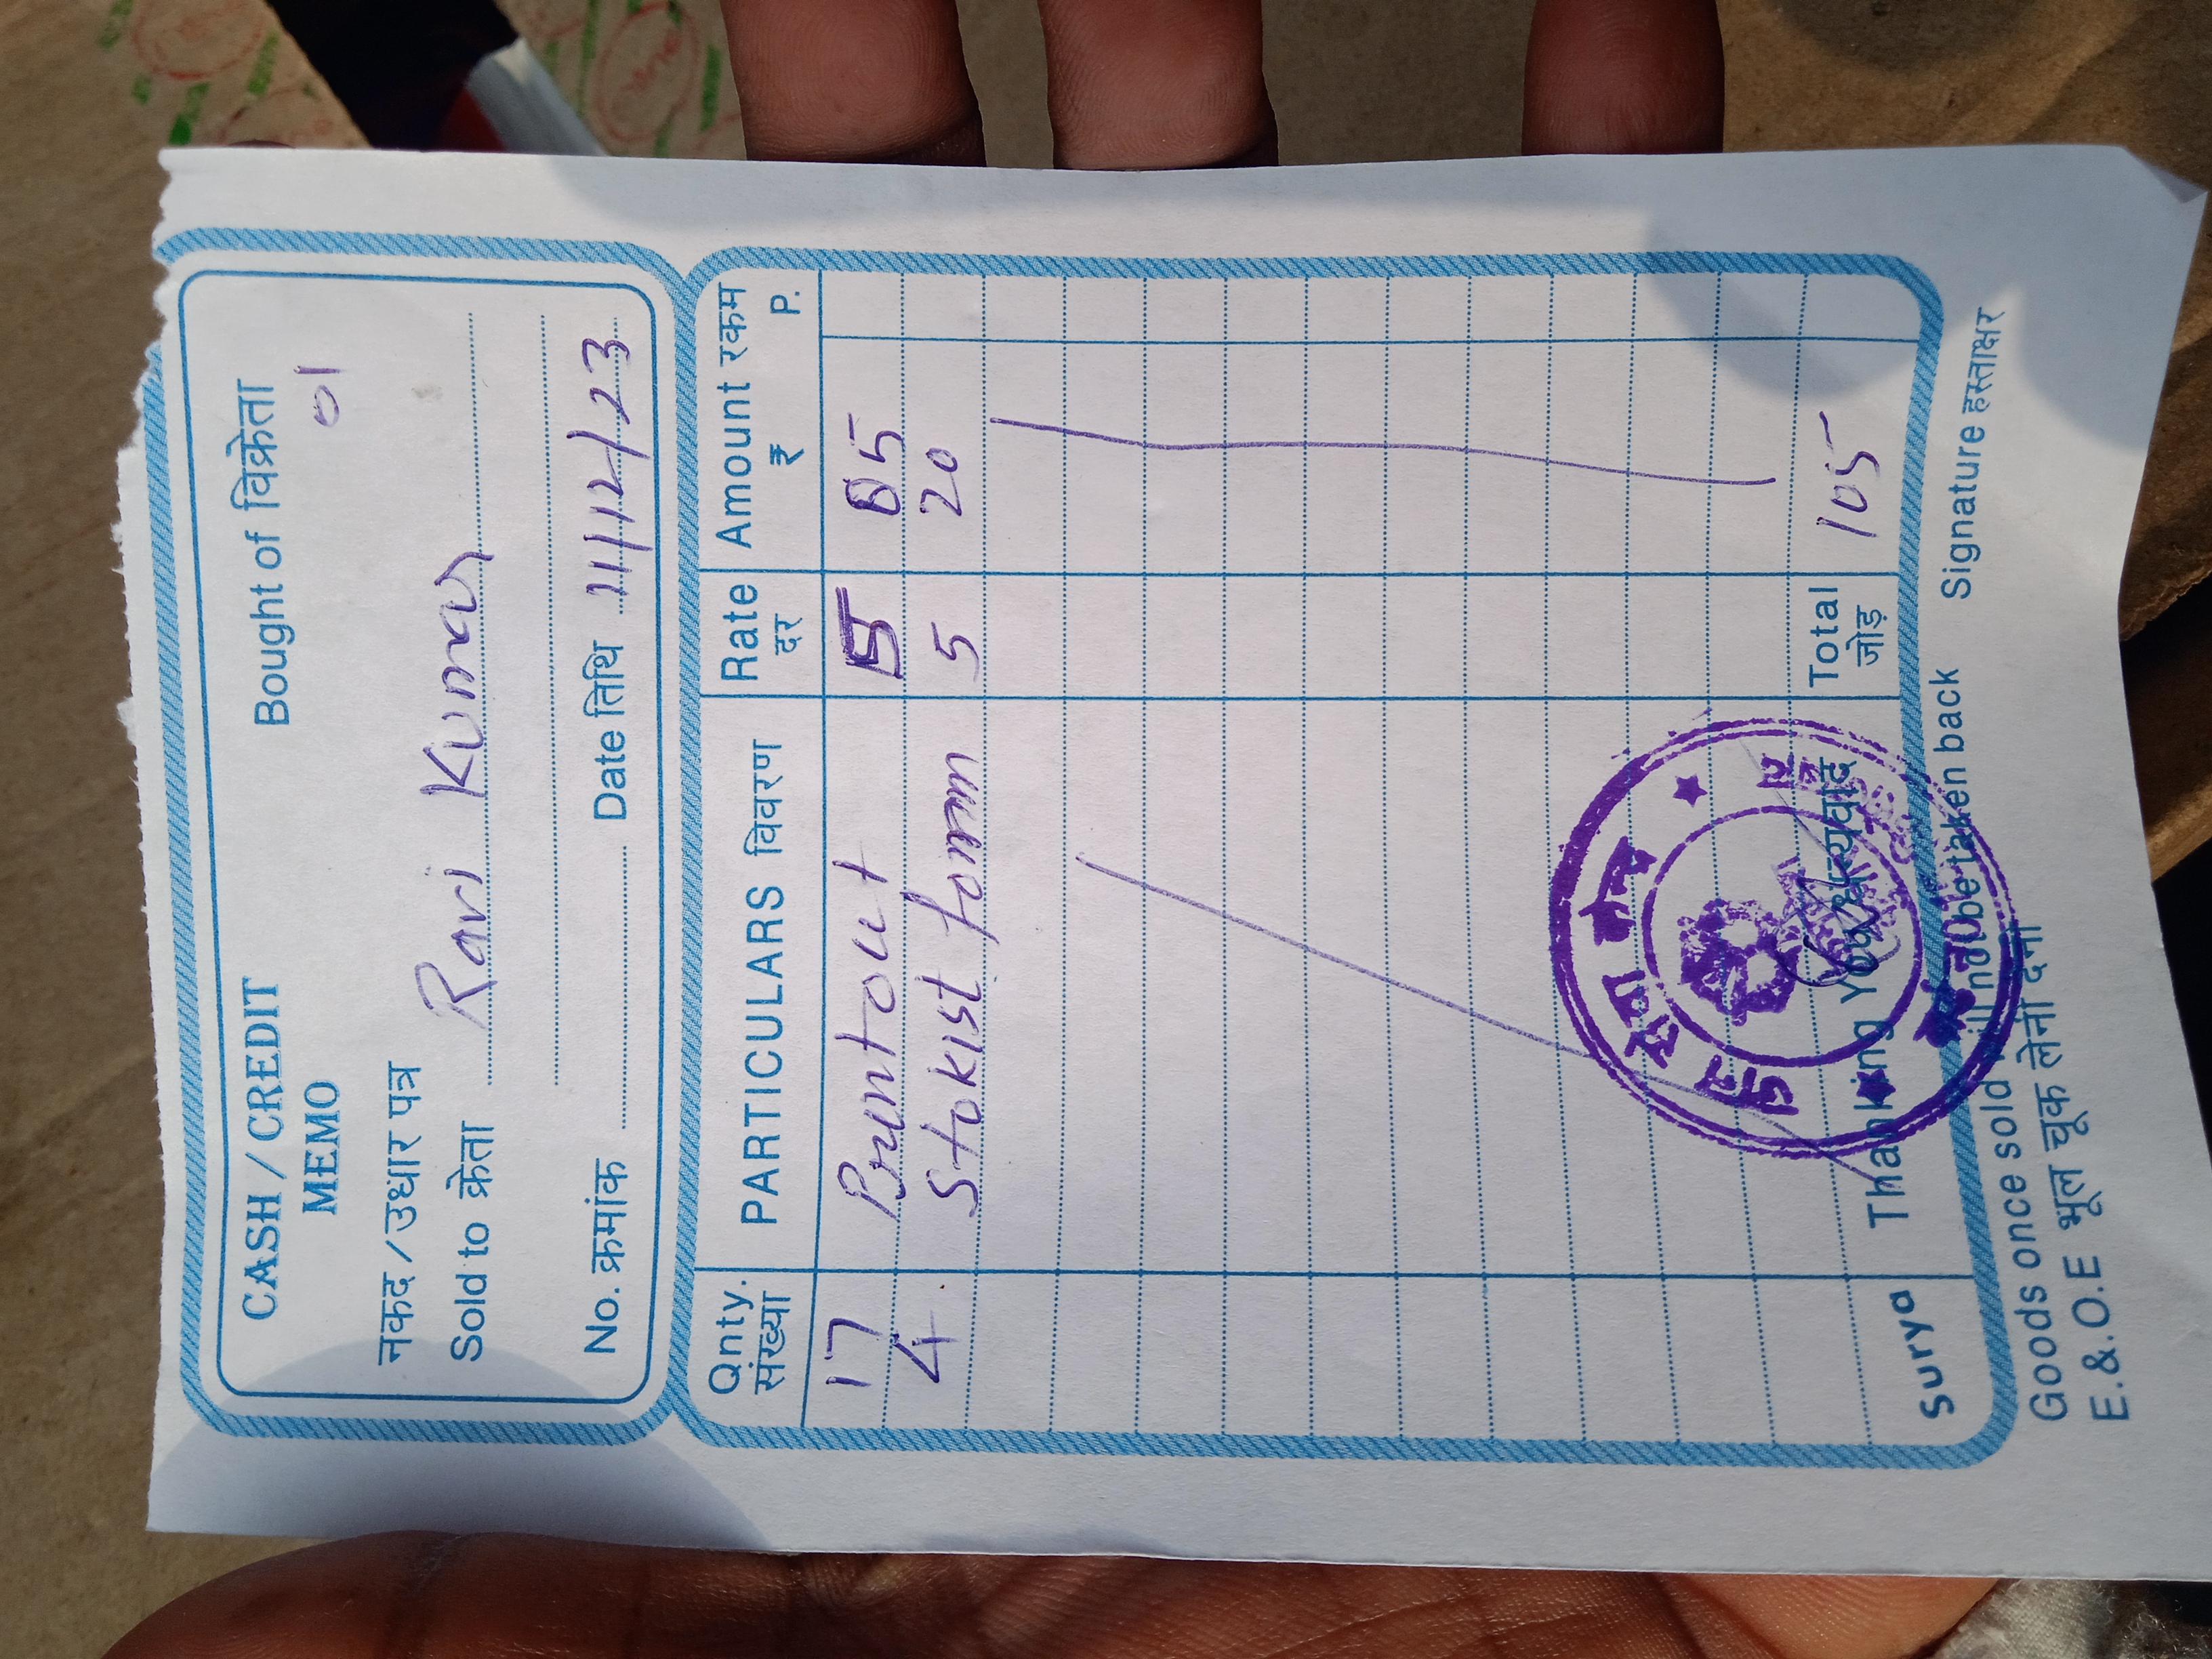 CASH / CREDIT Bought of विक्रेता
MEMO 01
नकद / उधार पत्र
Sold to क्रेता Ravi Kumar
No. क्रमांक Date तिथि 11/12/23
Qnty. PARTICULARS विवरण Rate Amount रकम
संख्या दर ₹ P.
17 Printout 5 85
4 Stokist form 5 20
जन सेवा केन्द्र
Total
जोड़ 105
Surya Thanking You धन्यवाद
Goods once sold will not be taken back Signature हस्ताक्षर
E.&.O.E भूल चूक लेनी देनी